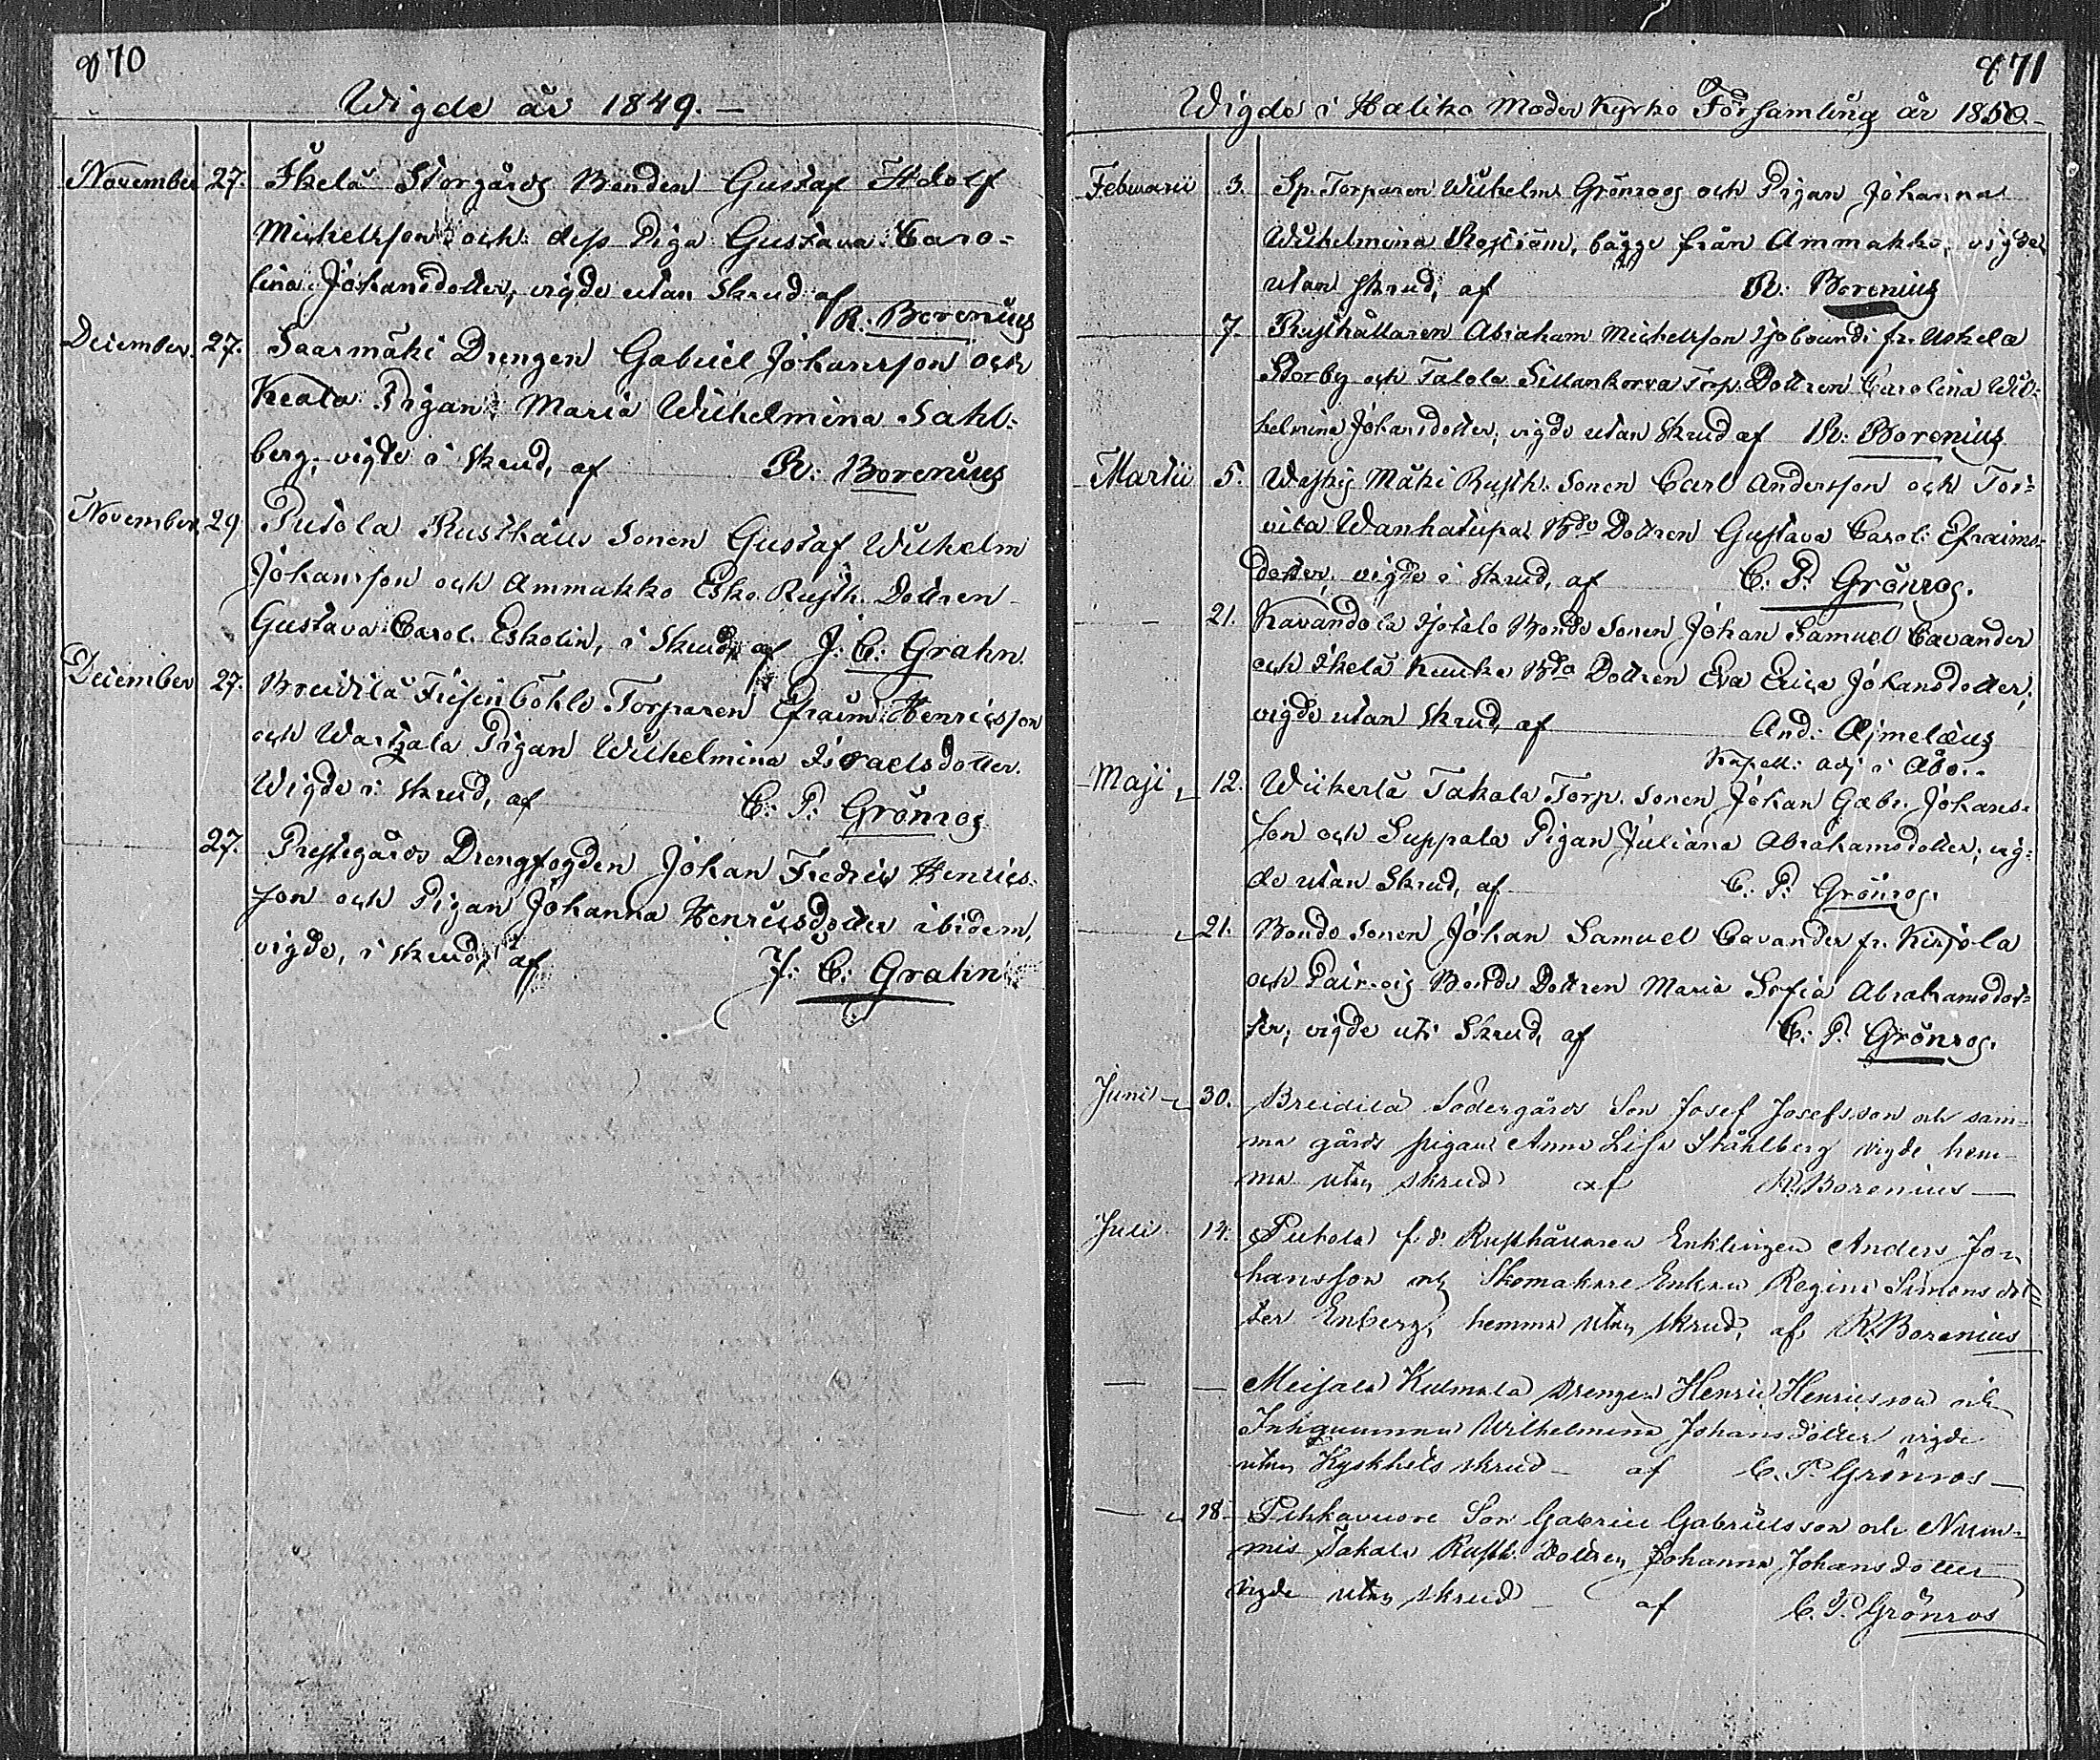 870
Wigde år 1849. —
November 27. Ikelä Storgårds Bonden Gustaf Adolf
Michelsson och dess Piga Gustava Caro-
lina Johansdotter, vigde utan Skrud af
R. Borenius
December 27. Saarmäki Drengen Gabriel Johansson och
Keala Pigan Maria Wilhelmina Sahl-
berg, vigde i Skrud, af R: Borenius
November 29 Putola Rusthålls Sonen Gustaf Wilhelm
Johansson och Ammakko Esko Rusth. Dottren
Gustava Carol. Eskolin, i Skrud, af J: C: Grahn.
December 27. Breidilä Torparen Efraim Henricsson
och Wartsala Pigan Wilhelmina Israelsdotter.
Wigde i Skrud, af C: P: Grönros
27. Prestegårds Drengfogden Johan Fredric Henrics-
son och Pigan Johanna Henricsdotter ibidem,
vigde, i Skrud, af J: C: Grahn
871
Wigde i Haliko Moder Kyrko Församling år 1850.—
Februarii 3. Sp. Torparen Wilhelm Grönroos och Pigan Johanna
Wilhelmina Roström, bägge från Ammakko, vigde
utan skrud, af R: Borenius
7. Rusthållaren Abraham Michelsson Sjöbound: fr. Uskela
Storby och Talola Sillankorva Torp. Dottren Carolina Wil-
helmina Johansdotter, vigde utan Skrud af R: Borenius
Martii 5. Waskis Mäki Rusth. Sonen Carl Andersson och Toi-
vila Wanhatupa Bde Dottren Gustava Carol: Efraims-
dotter, vigde i Skrud, af C: P: Grönros.
— 21. Kavandola Isotalo Bonde Sonen Johan Samuel Cavander
och Ikelä Bde Dottren Eva Erica Johansdotter,
vigde utan Skrud, af And: Æjmelæus
Kapell: adj i Åbo..
Maji 12. Wiikerlä Takala Torp. Sonen Johan Gabr. Johans-
son och Suppala Pigan Juliana Abrahamsdotter, vig-
de utan Skrud, af C: P: Grönros.
21. Bonde Sonen Johan Samuel Cavander fr. Kirjola
och Pair-ois Bonde Dottren Maria Sofia Abrahamsdot-
ter, vigde uti Skrud, af C: P: Grönros.
Juni 30. Breidilä Södergårds Son Josef Josefsson och sam-
ma gårds pigan Anna Lisa Ståhlberg vigde hem-
ma utan skrud af R. Borenius —
Juli 14. Putola f. d. Rusthållaren Enklingen Anders Jo-
hansson och Skomakare Enkan Regina Simonsdot-
ter Enberg, hemma utan skrud, af R. Borenius
— — Meisala Kulmala Drengen Henric Henricsson och
Inhysqvinnan Wilhelmina Johansdotter vigde
utan Kyskhets skrud — af C. P. Grönros —
— 18 Pihkavuori Son Gabriel Gabrielsson och Num-
mis Takala Rusth. Dottren Johanna Johansdotter
vigde utan skrud — af C. P. Grönros